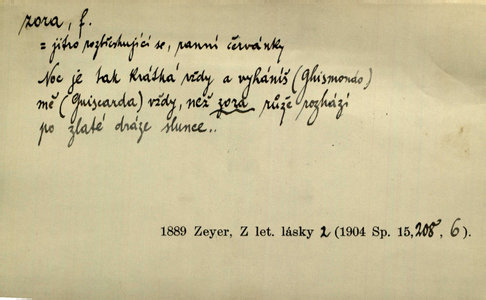 zora, f.
= jitro rozbřeskující se, ranní červánky
Noc je tak krátká, vždy a vyháníš (Ghismondo)
mě (Guiscarda) vždy, než zora růže rozhází
po zlaté dráze slunce..
1889 Zeyer, Z let. lásky 2 (1904 Sp. 15, 208, 6).